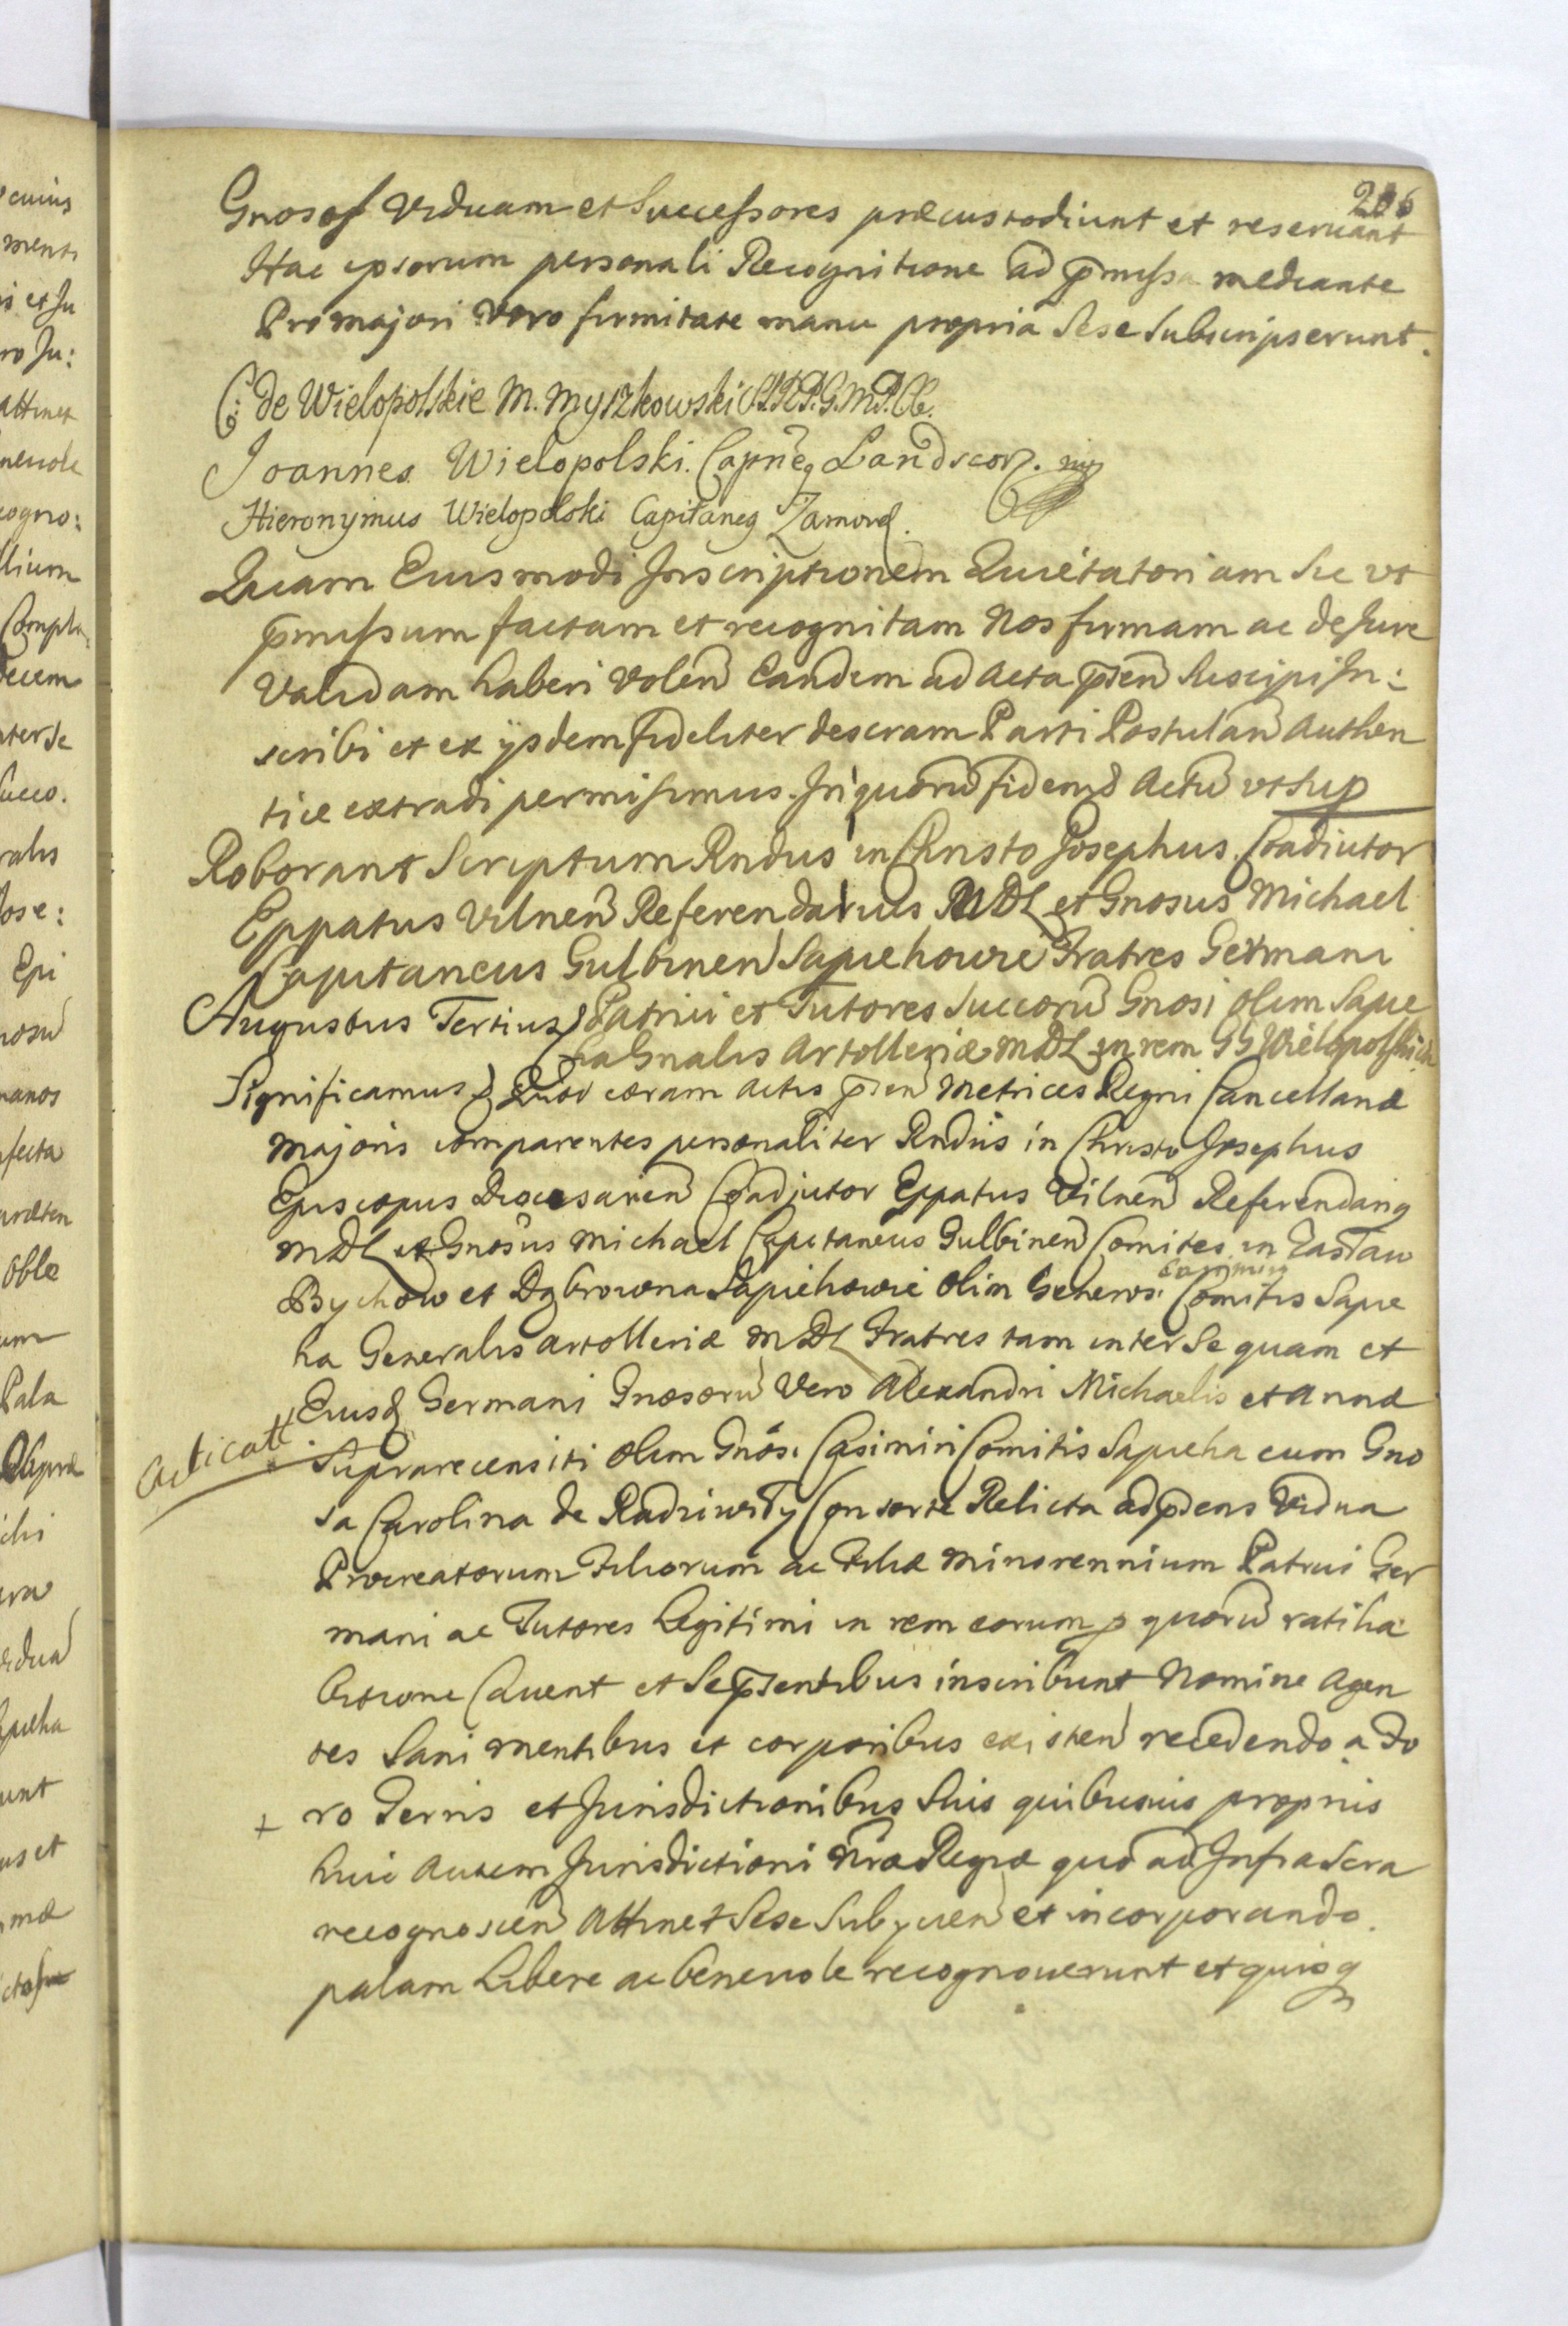 206
Gnosos Viduam et Successores præcustodiunt et reseruant
Hac ipsorum personali Recognitione ad p̄missa mediante
Pro majori vero firmitate manu propria Sese Subscripserunt.
C: de Wielopolskie M. Myszkowski
Joannes Wielopolski. Capñeq Landscor. mp
Hieronymus Wielopolski Capitaneq Zamord.
Quam Eiusmodi Inscriptionem Quietatoriam Sic vt
p̄missum factam et recognitam Nos firmam ac de Jure
Validam haberi Volen̄ Eandem ad Acta p̄sen̄ Suscipi In:
scribi et ex ijsdem fideliter descram Parti Postulan̄ Authen
tice extradi permisimus. In quorū fidem & Actū vt Sup
Roborant Scriptum Rndus in Christo Josephus Coadiutor
Eppatus Vilnen̄ Referendarius MDL et Gnosus Michael
Capitaneus Gulbinen̄ Sapiehowie Fratres Germani
Augustus Tertius & Patrui et Tutores Succorū Gnosi olim Sapie
ha Gnalis Artolleriæ MDL in rem GG Wielopolskich
Significamus & Quod coram Actis p̄sen̄ Metrices Regni Cancellariæ
Majoris comparentes personaliter Rndus in Christo Josephus
Episcopus Diocesanen̄ Coadjutor Eppatus Vilnen̄ Referendariq
MDL et Gnosus Michael Capitaneus Gulbinen̄ Comites in
Bychow et Dąbrowna Sapiehowie olim Generos: Casimiri Comitis Sapie
ha Generalis Artolleriæ MDL Fratres tam inter Se quam et
Eiusd Germani Gnosorū Vero Alexandri Michaelis et Annæ
Suprarecensiti olim Gnos. Casimiri Comitis Sapieha cum Gno
sa Carolina de Radziwiłły Consorte Relicta ad p̄sens Vidua
Procreatorum Filiorum ac Filiæ Minorennium Patrui Ger
mani ac Tutores Legitimi in rem eorum p quorū ratiha
bitione Cauent et Se p̄sentibus inscribunt Nomine Agen
tes Sani mentibus et corporibus existen̄ recedendo a Fo
+ ro Terris et Jurisdictionibus Suis quibusuis proprijs
huic Autem Jurisdictioni Nr̄æ Regiæ quo ad Infrascra
recognoscen̄ Attinet Sese Subjicien̄ et incorporando
palam Libere ac beneuole recognouerunt et quisq